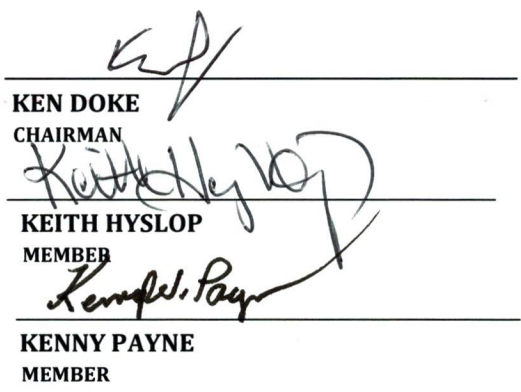 KEN DOKE
CHAIRMAN
Keith Hyslop
KEITH HYSLOP
MEMBER
Kenny W. Payne
KENNY PAYNE
MEMBER